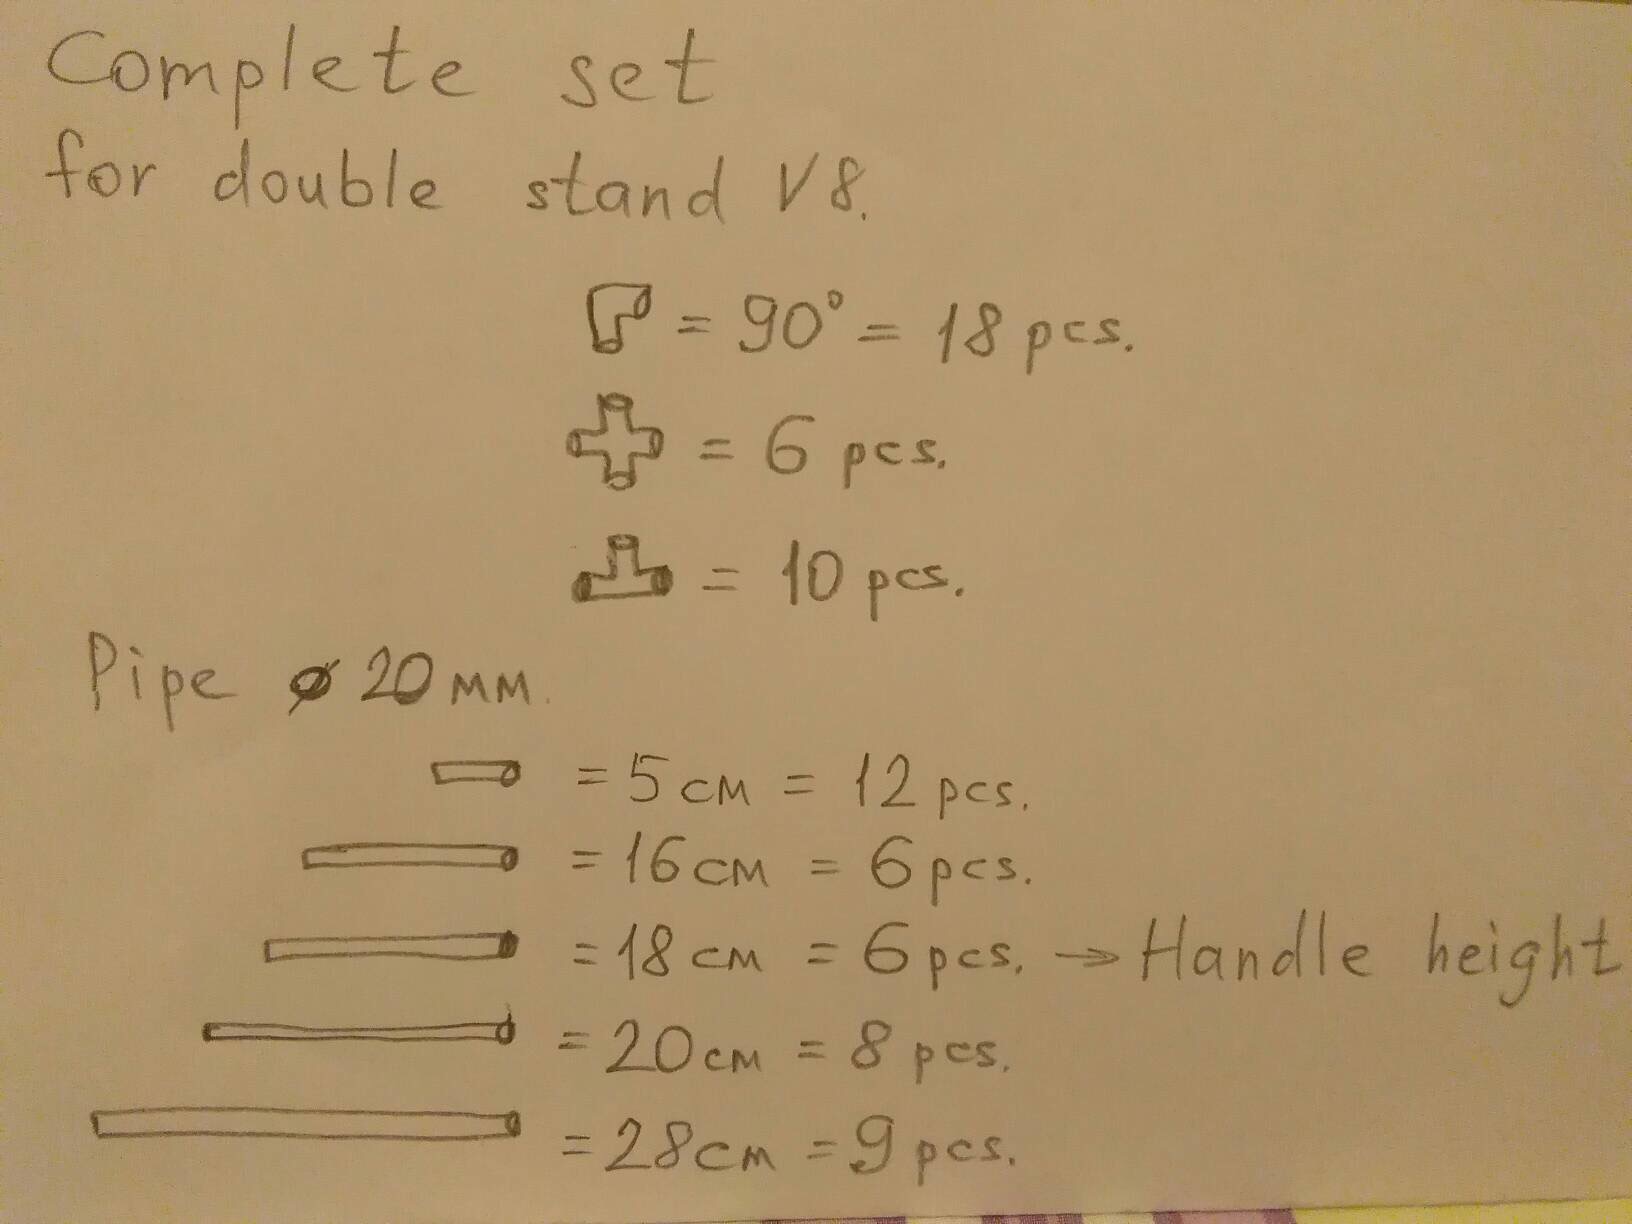 Complete set
for double stand V8.
= 90° = 18 pcs.
= 6 pcs.
= 10 pcs.
Pipe ⌀ 20 мм.
= 5 см = 12 pcs.
= 16 см = 6 pcs.
= 18 см = 6 pcs. → Handle height
= 20 см = 8 pcs.
= 28 см = 9 pcs.